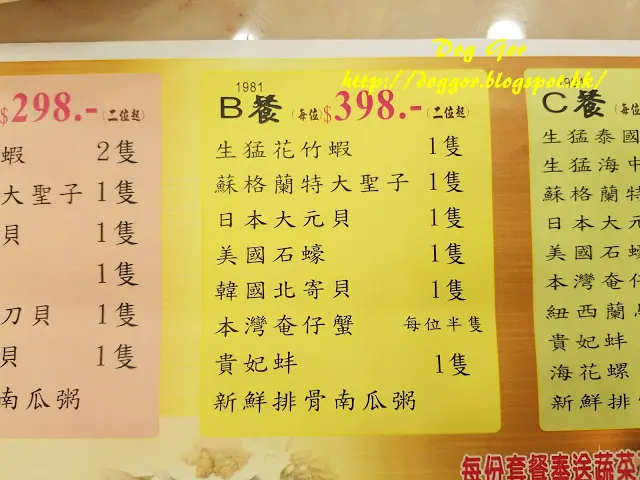 Dog Gor
http://doggor.blogspot.hk/
$298.-(二位起)
蝦 2隻
大聖子 1隻
貝 1隻
1隻
刀貝 1隻
貝 1隻
南瓜粥
1981
B餐(每位)$398.-(二位起)
生猛花竹蝦 1隻
蘇格蘭特大聖子 1隻
日本大元貝 1隻
美國石蠔 1隻
韓國北寄貝 1隻
本灣奄仔蟹 每位半隻
貴妃蚌 1隻
新鮮排骨南瓜粥
C餐(每位
生猛泰國
生猛海中
蘇格蘭特
日本大元
美國石蠔
本灣奄仔
紐西蘭
貴妃蚌
海花螺
新鮮排骨
每份套餐奉送蔬菜